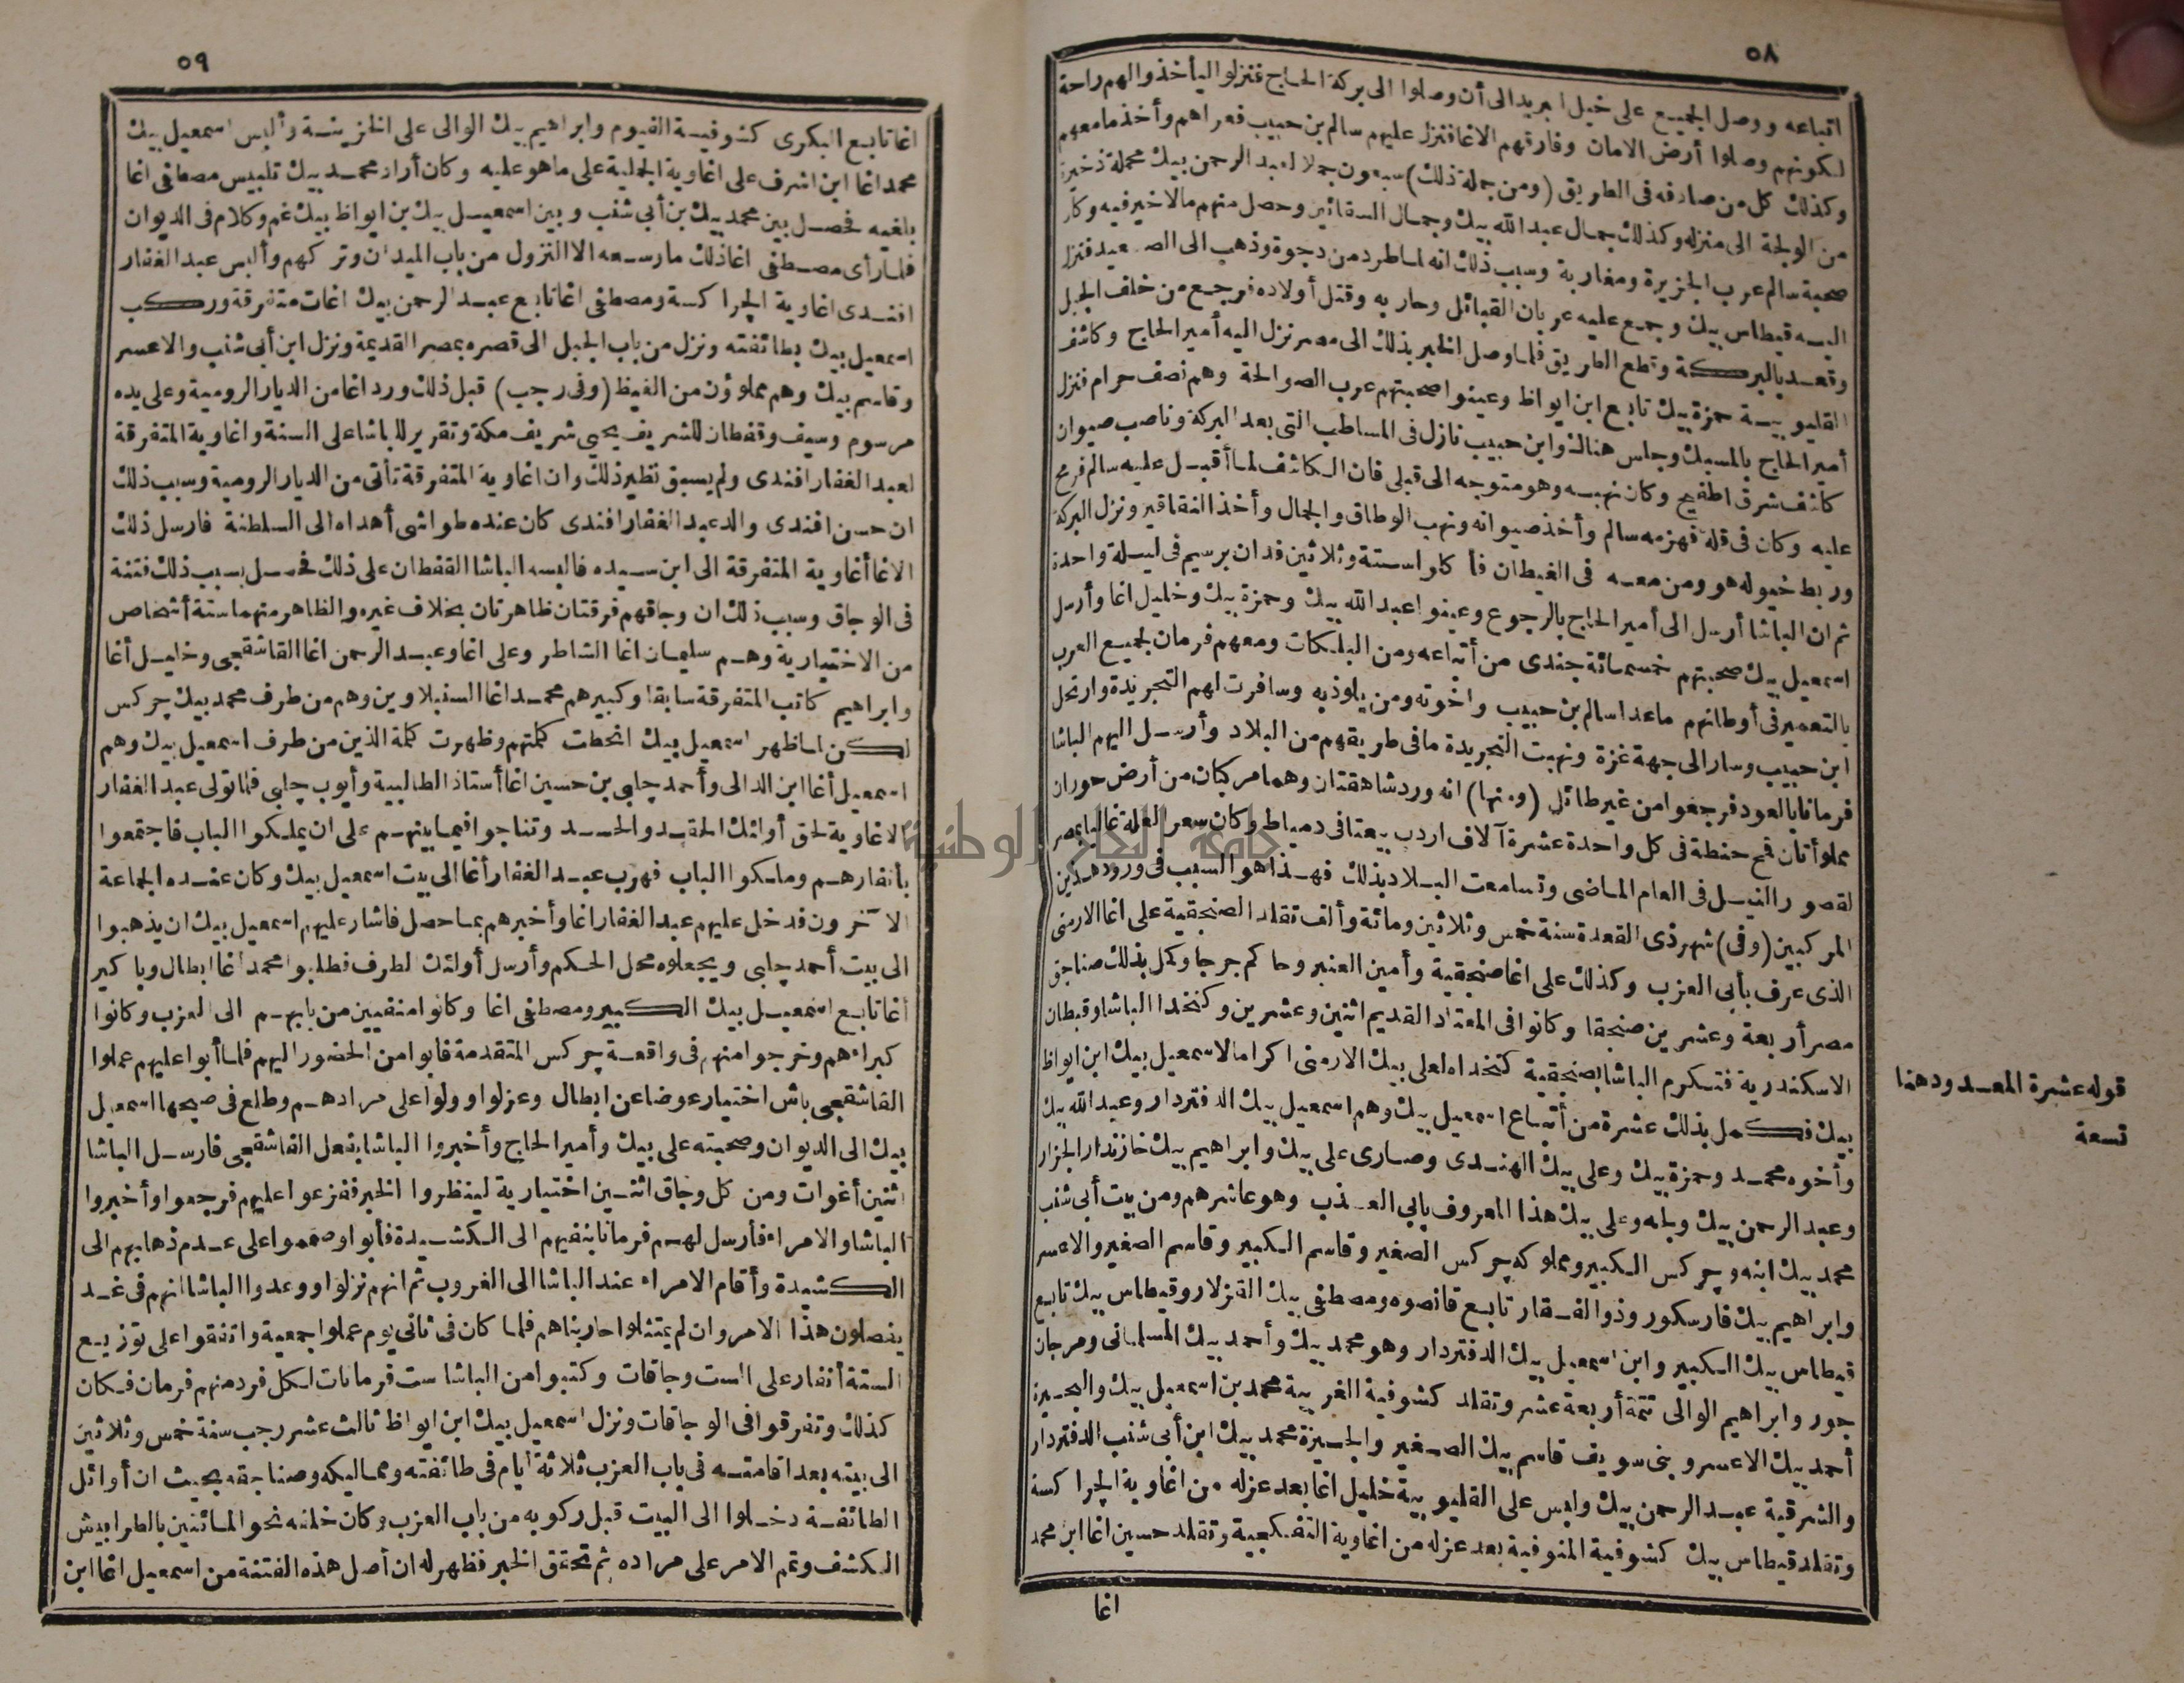 ٥٨
اتباعه ووصل الجميع على خيل البريد الى أن وصلوا الى بركة الحاج فنزلوا ليأخذوا لهم راحة
لكونهم وصلوا أرض الامان وفارقهم الاغا فنزل عليهم سالم بن حبيب فعراهم وأخذ ما معهم
وكذلك كل من صادفه فى الطريق (ومن جملة ذلك) سبعون جملا لعبد الرحمن بيك محملة ذخيرة
من الولجة الى منزله وكذلك جمال عبد الله بيك وجمال السقائين وحصل منهم مالا خير فيه وكان
صحبة سالم عرب الجزيرة ومغاربة وسبب ذلك انه لما طرد من دجوة وذهب الى الصعيد فنزل
اليه قيطاس بيك وجمع عليه عربان القبائل وحاربه وقتل أولاده فرجع من خلف الجبل
وقعد بالبركة وقطع الطريق فلما وصل الخبر بذلك الى مصر نزل اليه أمير الحاج وكاشف
القليوبية حمزة بيك تابع ابن ايواظ وعينوا صحبتهم عرب الصوالحة وهم نصف حرام فنزل
أمير الحاج بالمسبك وجلس هناك وابن حبيب نازل فى المساطب التى بعد البركة وناصب صيوان
كاشف شرق اطفيح وكان نهبه وهو متوجه الى قبلى فان الكاشف لما أقبل عليه سالم فرمح
عليه وكان فى قلة فهزمه سالم وأخذ صيوانه ونهب الوطاق والجمال وأخذ النقاقير ونزل البركة
وربط خيوله هو ومن معه فى الغيطان فأكلوا ستة وثلاثين فدان برسيم فى ليلة واحدة
ثم ان الباشا أرسل الى أمير الحاج بالرجوع وعينوا عبد الله بيك وحمزة بيك وخليل اغا وأرسل
اسمعيل بيك صحبتهم خمسمائة جندى من أتباعه ومن البلكات ومعهم فرمان لجميع العرب
بالتعمير فى أوطانهم ماعدا سالم بن حبيب واخوته ومن يلوذ به وسافرت لهم التجريدة وارتحل
ابن حبيب وسار الى جهة غزة ونهبت التجريدة ما فى طريقهم من البلاد وأرسل اليهم الباشا
فرمانا بالعود فرجعوا من غير طائل (ومنها) انه ورد شاهقتان وهما مركبان من أرض حوران
مملوأتان قمح حنطة فى كل واحدة عشرة آلاف اردب بيعتا فى دمياط وكان سعر الغلة غاليا بمصر
لقصور النيل فى العام الماضى وتسامعت البلاد بذلك فهذا هو السبب فى ورود هذين
المركبين (وفى) شهر ذى القعدة سنة خمس وثلاثين ومائة وألف تقلد الصنجقية على اغا الارمنى
الذى عرف بأبى العزب وكذلك على اغا صنجقية وأمين العنبر وحاكم جرجا وكمل بذلك صناجق
مصر أربعة وعشرين صنجقا وكانوا فى المعتاد القديم اثنين وعشرين وكتخدا الباشا وقبطان
الاسكندرية فتكرم الباشا بصنجقية كتخداه لعلى بيك الارمنى اكراما لاسمعيل بيك ابن ايواظ
بيك فكمل بذلك عشرة من أتباع اسمعيل بيك وهم اسمعيل بيك الدفتردار وعبد الله بيك
وأخوه محمد وحمزة بيك وعلى بيك الهندى وصارى على بيك وابراهيم بيك خازندار الجزار
وعبد الرحمن بيك ولجه وعلى بيك هذا المعروف بابى العذب وهو عاشرهم ومن بيت أبى شنب
محمد بيك ابنه وچركس الكبير ومملوكه چركس الصغير وقاسم الكبير وقاسم الصغير والاعسر
وابراهيم بيك فارسكور وذو الفقار تابع قانصوه ومصطفى بيك القزلار وقيطاس بيك تابع
قيطاس بيك الكبير وابن اسمعيل بيك الدفتردار وهو محمد بيك وأحمد بيك المسلمانى ومرجان
جور وابراهيم الوالى تتمة أربعة عشر وتقلد كشوفية الغربية محمد بن اسمعيل بيك والبحيرة
أحمد بيك الاعسر وبنى سويف قاسم بيك الصغير والجيزة محمد بيك ابن أبى شنب الدفتردار
والشرقية عبد الرحمن بيك ولبس على القليوبية خليل اغا بعد عزله من اغاوية الچراكسة
وتقلد قيطاس بيك كشوفية المنوفية بعد عزله من اغاوية التفكجية وتقلد حسين اغا ابن محمد
اغا
قوله عشرة المعدود هنا
تسعة
٥٩
اغا تابع البكرى كشوفية الفيوم وابراهيم بيك الوالى على الخزينة وألبس اسمعيل بيك
محمد اغا ابن اشرف على اغاوية الجملية على ما هو عليه وكان أراد محمد بيك تلبيس مصطفى اغا
بلغيه فحصل بين محمد بيك بن أبى شنب وبين اسمعيل بيك بن ايواظ بيك غم وكلام فى الديوان
فلما رأى مصطفى اغا ذلك ما وسعه الا النزول من باب الميدان وتركهم وألبس عبد الغفار
افندى اغاوية الچراكسة ومصطفى اغا تابع عبد الرحمن بيك اغات متفرقة وركب
اسمعيل بيك بطائفته ونزل من باب الجبل الى قصره بمصر القديمة ونزل ابن أبى شنب والاعسر
وقاسم بيك وهم مملوؤن من الغيظ (وفى رجب) قبل ذلك ورد اغا من الديار الرومية وعلى يده
مرسوم وسيف وقفطان للشريف يحيى شريف مكة وتقرير للباشا على السنة واغاوية المتفرقة
لعبد الغفار افندى ولم يسبق نظير ذلك وان اغاوية المتفرقة تأتى من الديار الرومية وسبب ذلك
ان حسن افندى والد عبد الغفار افندى كان عنده طواشى أهداه الى السلطنة فارسل ذلك
الاغا أغاوية المتفرقة الى ابن سيده فالبسه الباشا القفطان على ذلك فحصل بسبب ذلك فتنة
فى الوجاق وسبب ذلك ان وجاقهم فرقتان ظاهرتان بخلاف غيره والظاهر منهما ستة أشخاص
من الاختيارية وهم سليمان اغا الشاطر وعلى اغا وعبد الرحمن اغا القاشقجى وخليل أغا
وابراهيم كاتب المتفرقة سابقا وكبيرهم محمد اغا السنبلاوين وهم من طرف محمد بيك چركس
لكن لما ظهر اسمعيل بيك انحطت كلمتهم وظهرت كلمة الذين من طرف اسمعيل بيك وهم
اسمعيل أغا ابن الدالى وأحمد چلبى بن حسين اغا أستاذ الطالبية وأيوب چلبى فلما تولى عبد الغفار
الاغاوية لحق أولئك الحقد والحسد وتناجوا فيما بينهم على ان يملكوا الباب فاجتمعوا
بأنفارهم وملكوا الباب فهرب عبد الغفار أغا الى بيت اسمعيل بيك وكان عنده الجماعة
الآخرون فدخل عليهم عبد الغفار اغا وأخبرهم بما حصل فاشار عليهم اسمعيل بيك ان يذهبوا
الى بيت أحمد چلبى ويجعلوه محل الحكم وأرسل أولئك الطرف فطلبوا محمد اغا ابطال وباكير
اغا تابع اسمعيل بيك الكبير ومصطفى اغا وكانوا منفيين من بابهم الى العزب وكانوا
كبراءهم وخرجوا منهم فى واقعة چركس المتقدمة فابوا من الحضور اليهم فلما أبوا عليهم عملوا
القاشقجى باش اختيار عوضا عن ابطال وعزلوا وولوا على مرادهم وطلع فى صبحها اسمعيل
بيك الى الديوان وصحبته على بيك وأمير الحاج وأخبروا الباشا بفعل القاشقجى فارسل الباشا
اثنين أغوات ومن كل وجاق اثنين اختيارية لينظروا الخبر ففزعوا عليهم فرجعوا وأخبروا
الباشا والامراء فأرسل لهم فرمانا بنفيهم الى الكشيدة فأبوا وصمموا على عدم ذهابهم الى
الكشيدة وأقام الامراء عند الباشا الى الغروب ثم انهم نزلوا ووعدوا الباشا انهم فى غد
يفصلون هذا الامر وان لم يمتثلوا حاربناهم فلما كان فى ثانى يوم عملوا جمعية واتفقوا على توزيع
الستة أنفار على الست وجاقات وكتبوا من الباشا ست فرمانات لكل فرد منهم فرمان فكان
كذلك وتفرقوا فى الوجاقات ونزل اسمعيل بيك ابن ايواظ ثالث عشر رجب سنة خمس وثلاثين
الى بيته بعد اقامته فى باب العزب ثلاثة أيام فى طائفته ومماليكه وصناجقه بحيث ان أوائل
الطائفة دخلوا الى البيت قبل ركوبه من باب العزب وكان خلفه نحو المائتين بالطرابيش
الكشف وتم الامر على مراده ثم تحقق الخبر فظهر له ان أصل هذه الفتنة من اسمعيل اغا ابن
جامعة النجاح الوطنية